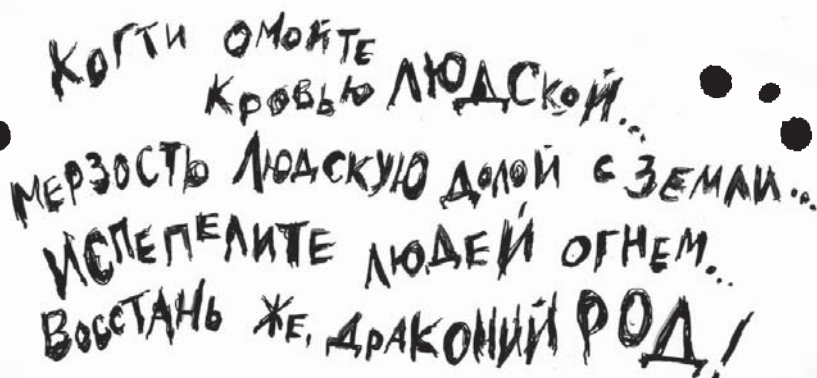 Когти омойте
кровью ЛЮДСкой...
мерзость Людскую долой с земли...
ИСПЕПЕЛИТЕ ЛЮДЕЙ ОГНЕМ...
Восстань же, драконий РОД!